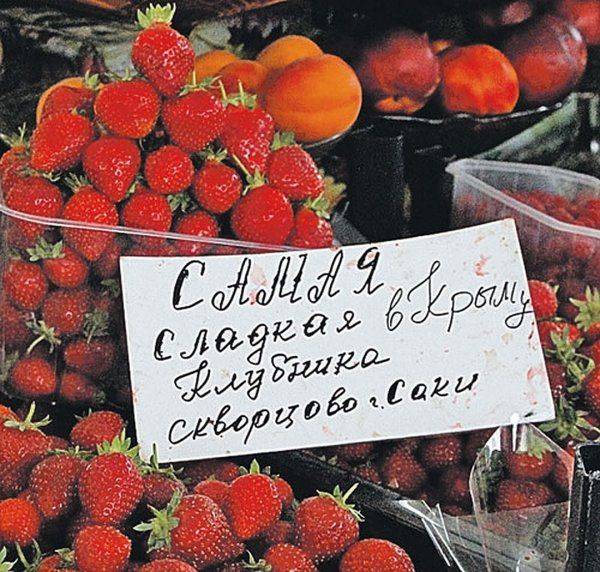 САМАЯ
сладкая в Крыму
Клубника
скворцово г. Саки